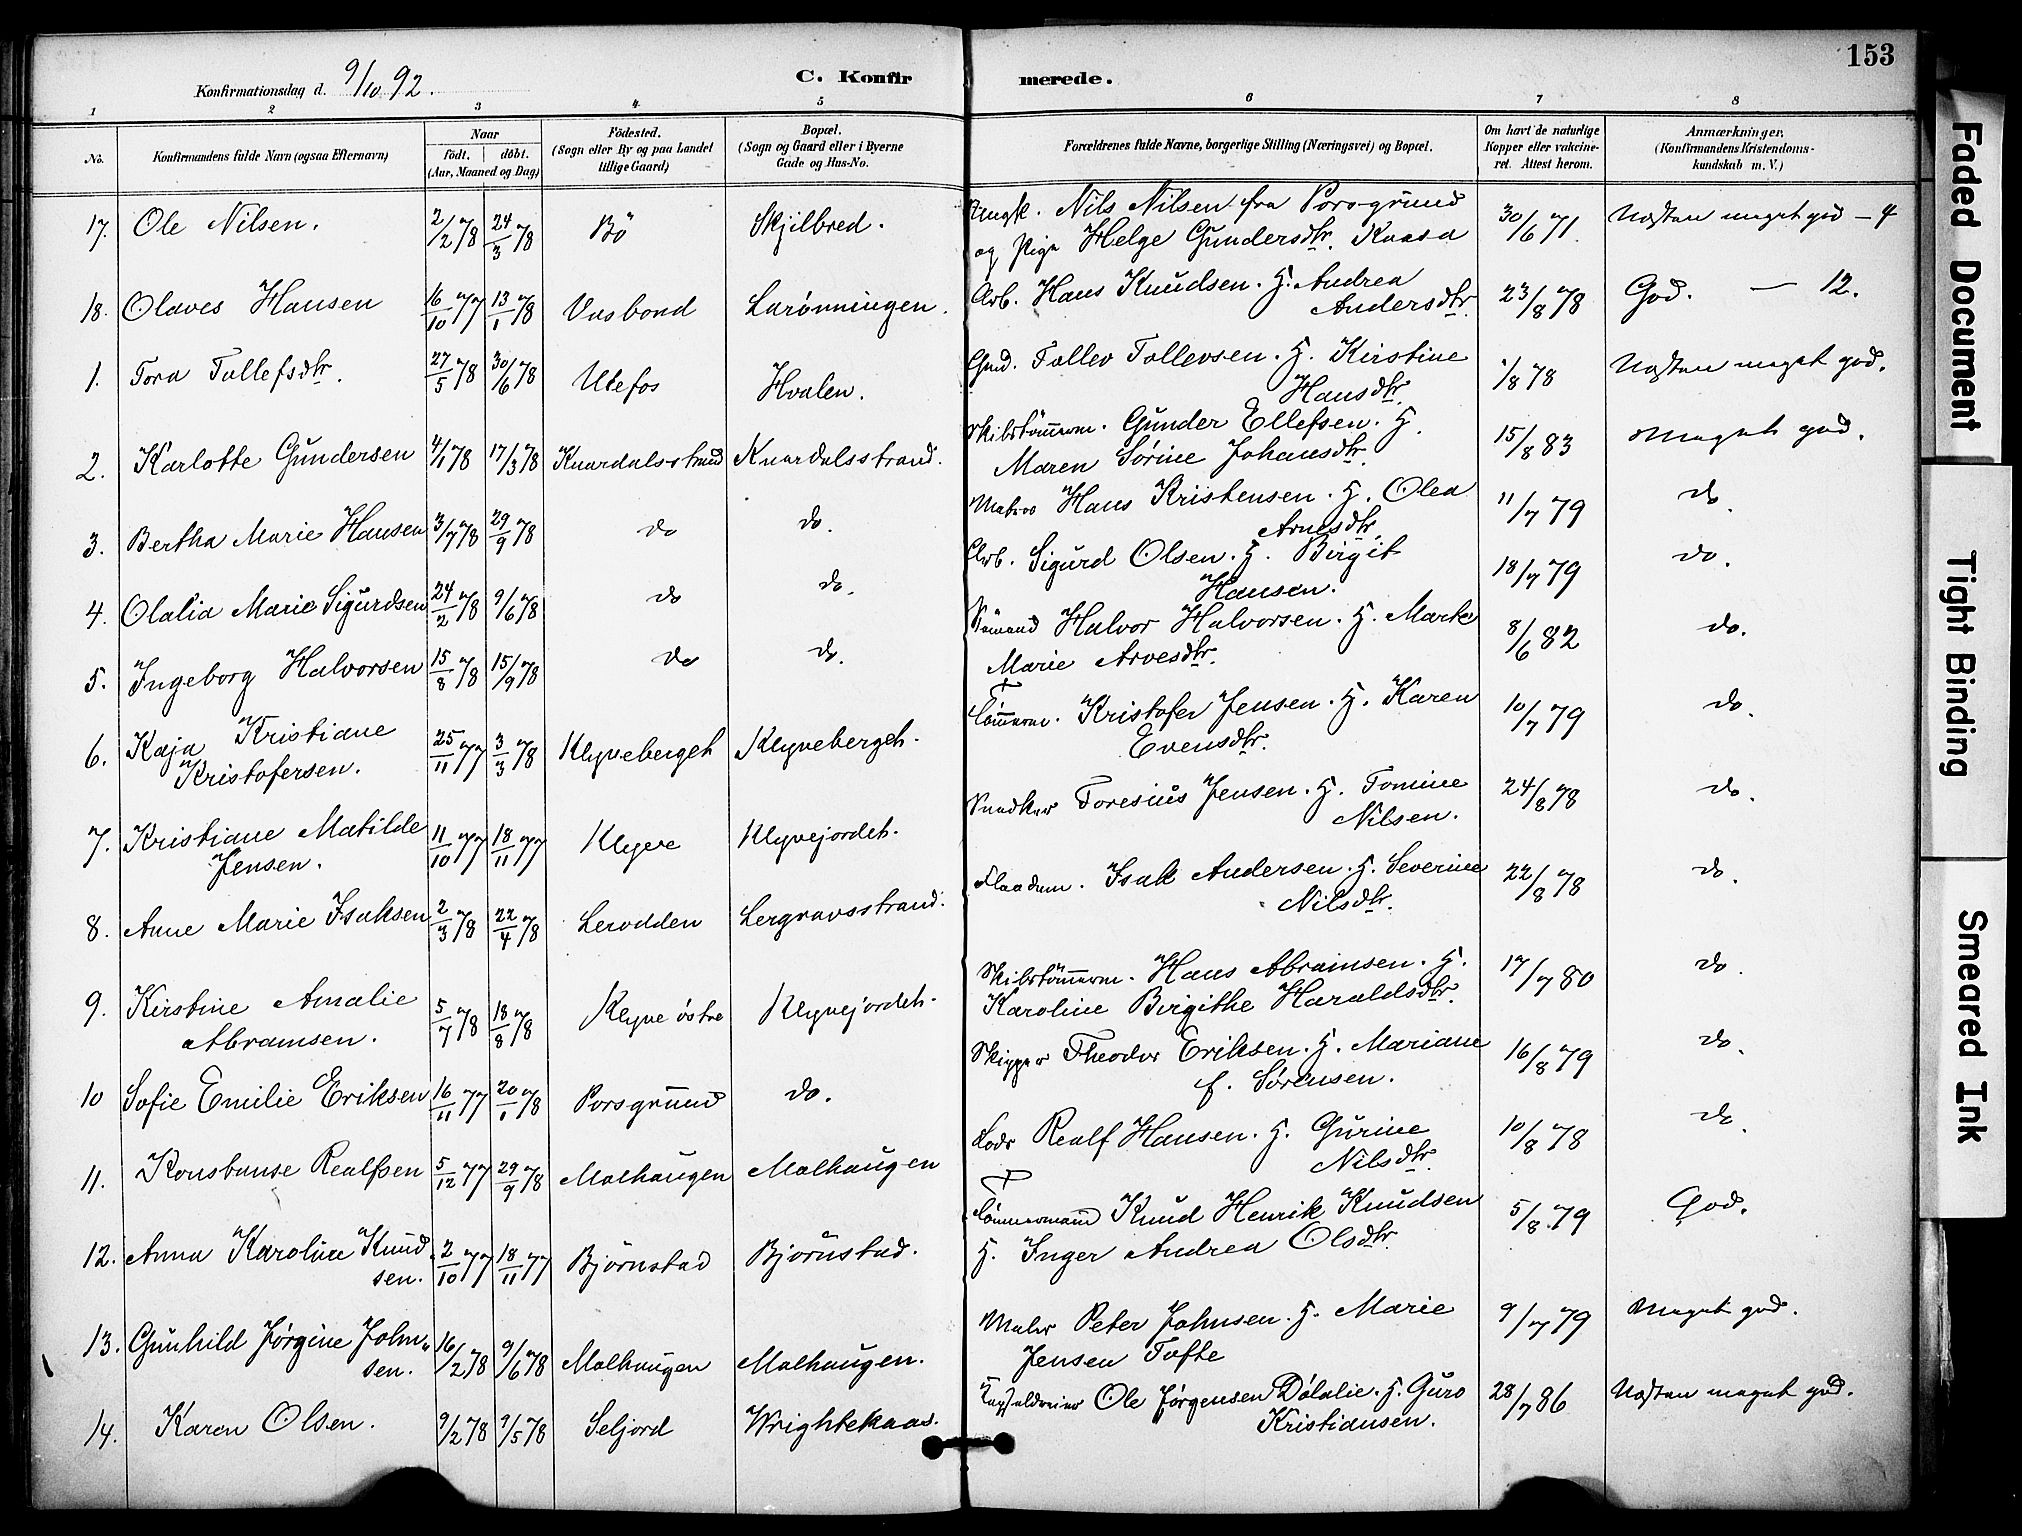 153
Konfirmationsdag d. 9/10 92.
C. Konfirmerede.
1 2 3 4 5 6 7 8
No. Konfirmandens fulde Navn (ogsaa Efternavn) Naar födt. döbt. (Aar, Maaned og Dag) Födested. (Sogn eller By og paa Landet tillige Gaard) Bopæl. (Sogn og Gaard eller i Byerne Gade og Hus-No. Forældrenes fulde Navne, borgerlige Stilling (Næringsvei) og Bopæl. Om havt de naturlige Kopper eller vakcineret. Attest herom. Anmærkninger, (Konfirmandens Kristendomskundskab m. V.)
17. Ole Nilsen. 2/2 78 24/3 78 Bö Skjilbred. Ungk. Nils Nilsen fra Porsgrund 30/6 71. Næsten meget god – 4
og Pige Helge Gundersdtr. Kaasa
18. Olaves Hansen 16/10 77 13/1 78 Larönningen. Arb. Hans Knudsen. H. Andrea 23/8 78 God. — 12.
Andersdtr.
1. Tora Tollefsdtr. 27/5 78 30/6 78 Utefos Hvalen. Tollev Tollevsen. H. Kirstine /8 78 Næsten meget god.
Hansdtr.
2. Karlotte Gundersen 4/1 78 17/3 78 Knardalsstrand Knardalsstrand. Skibstömerm. Gunder Ellefsen. H. 15/8 83 Meget god.
Maren Sörine Johansdtr.
3. Bertha Marie Hansen 3/7 78 29/9 78 do do. Matros Hans Kristensen. H. Olea 11/7 79 do.
Arnesdtr.
4. Olalia Marie Sigurdsen 24/2 78 9/6 78 do do. Arb. Sigurd Olsen. H. Birgit 18/7 79 do.
Hansen.
5. Ingeborg Halvorsen 15/8 78 15/9 78 do do. Sömand Halvor Halvorsen. H. Marte 8/6 82 do.
Marie Arvesdtr.
6. Kaja Kristiane 25/11 77 3/3 78 Klyvebergeh Klyvebergeh. Tömerm. Kristofer Jensen. H. Karen 10/7 79 do.
Kristofersen. Evensdtr.
7. Kristiane Matilde 11/10 77 18/11 77 Klyve Klyvejordeh. Snedker Toresius Jensen. H. Tomine 24/8 78 do.
Jensen. Nilsen.
8. Anne Marie Isaksen 2/3 78 22/4 78 Lerodden Lergravsstrand. Isak Andersen. H. Severine 22/8 78 do.
Nilsdtr.
9. Kirstine Amalie 5/7 78 18/8 78 Klyve östre Klyvejordeh. Skibstömerm. Hans Abramsen. H. 17/7 80 do.
Abramsen. Karoline Birgithe Haraldsdtr.
10 Sofie Emilie Eriksen 16/11 77 20/1 78 Porsgrund do. Skipper Theodor Eriksen. H. Mariane 16/8 79 do.
f. Sörensen.
11. Konstanse Realfsen 5/12 77 29/9 78 Malhaugen Malhaugen Lods Realf Hansen. H. Gurine 10/8 78 do.
Nilsdtr.
12. Anna Karoline Knud 2/10 77 18/11 77 Björnstad Björnstad. Tömmermand Knud Henrik Knudsen 5/8 79 God.
sen. H. Inger Andrea Olsdtr.
13. Gunhild Jörgine John- 16/2 78 9/6 78 Malhaugen Malhaugen. Maler Peter Johnsen. H. Marie 9/7 79 Meget god.
sen. Jensen Tofte
14. Karen Olsen. 9/2 78 9/5 78 Seljord Wrightekaas. Ole Jörgensen Dölalie. H. Guro 28/7 86 Næsten meget god.
Kristiansen.
Faded Document
Tight Binding
Smeared Ink